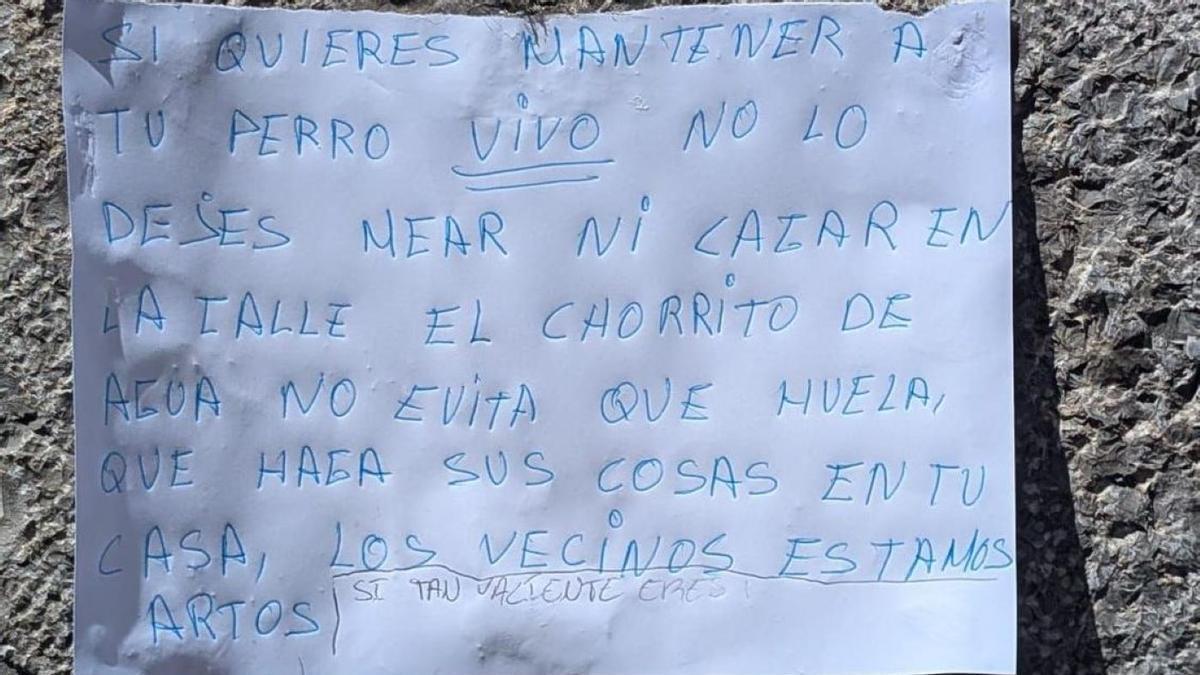 SI QUIERES MANTENER A
TU PERRO VIVO NO LO
DEJES MEAR NI CAGAR EN
LA CALLE EL CHORRITO DE
AGUA NO EVITA QUE HUELA,
QUE HAGA SUS COSAS EN TU
CASA, LOS VECINOS ESTAMOS
ARTOS
SI TAN VALIENTE ERES